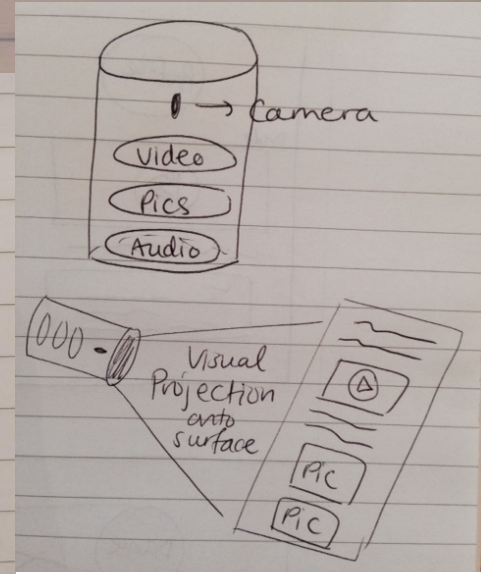 Camera
Video
Pics
Audio
Visual
Projection
onto
surface
Pic
Pic